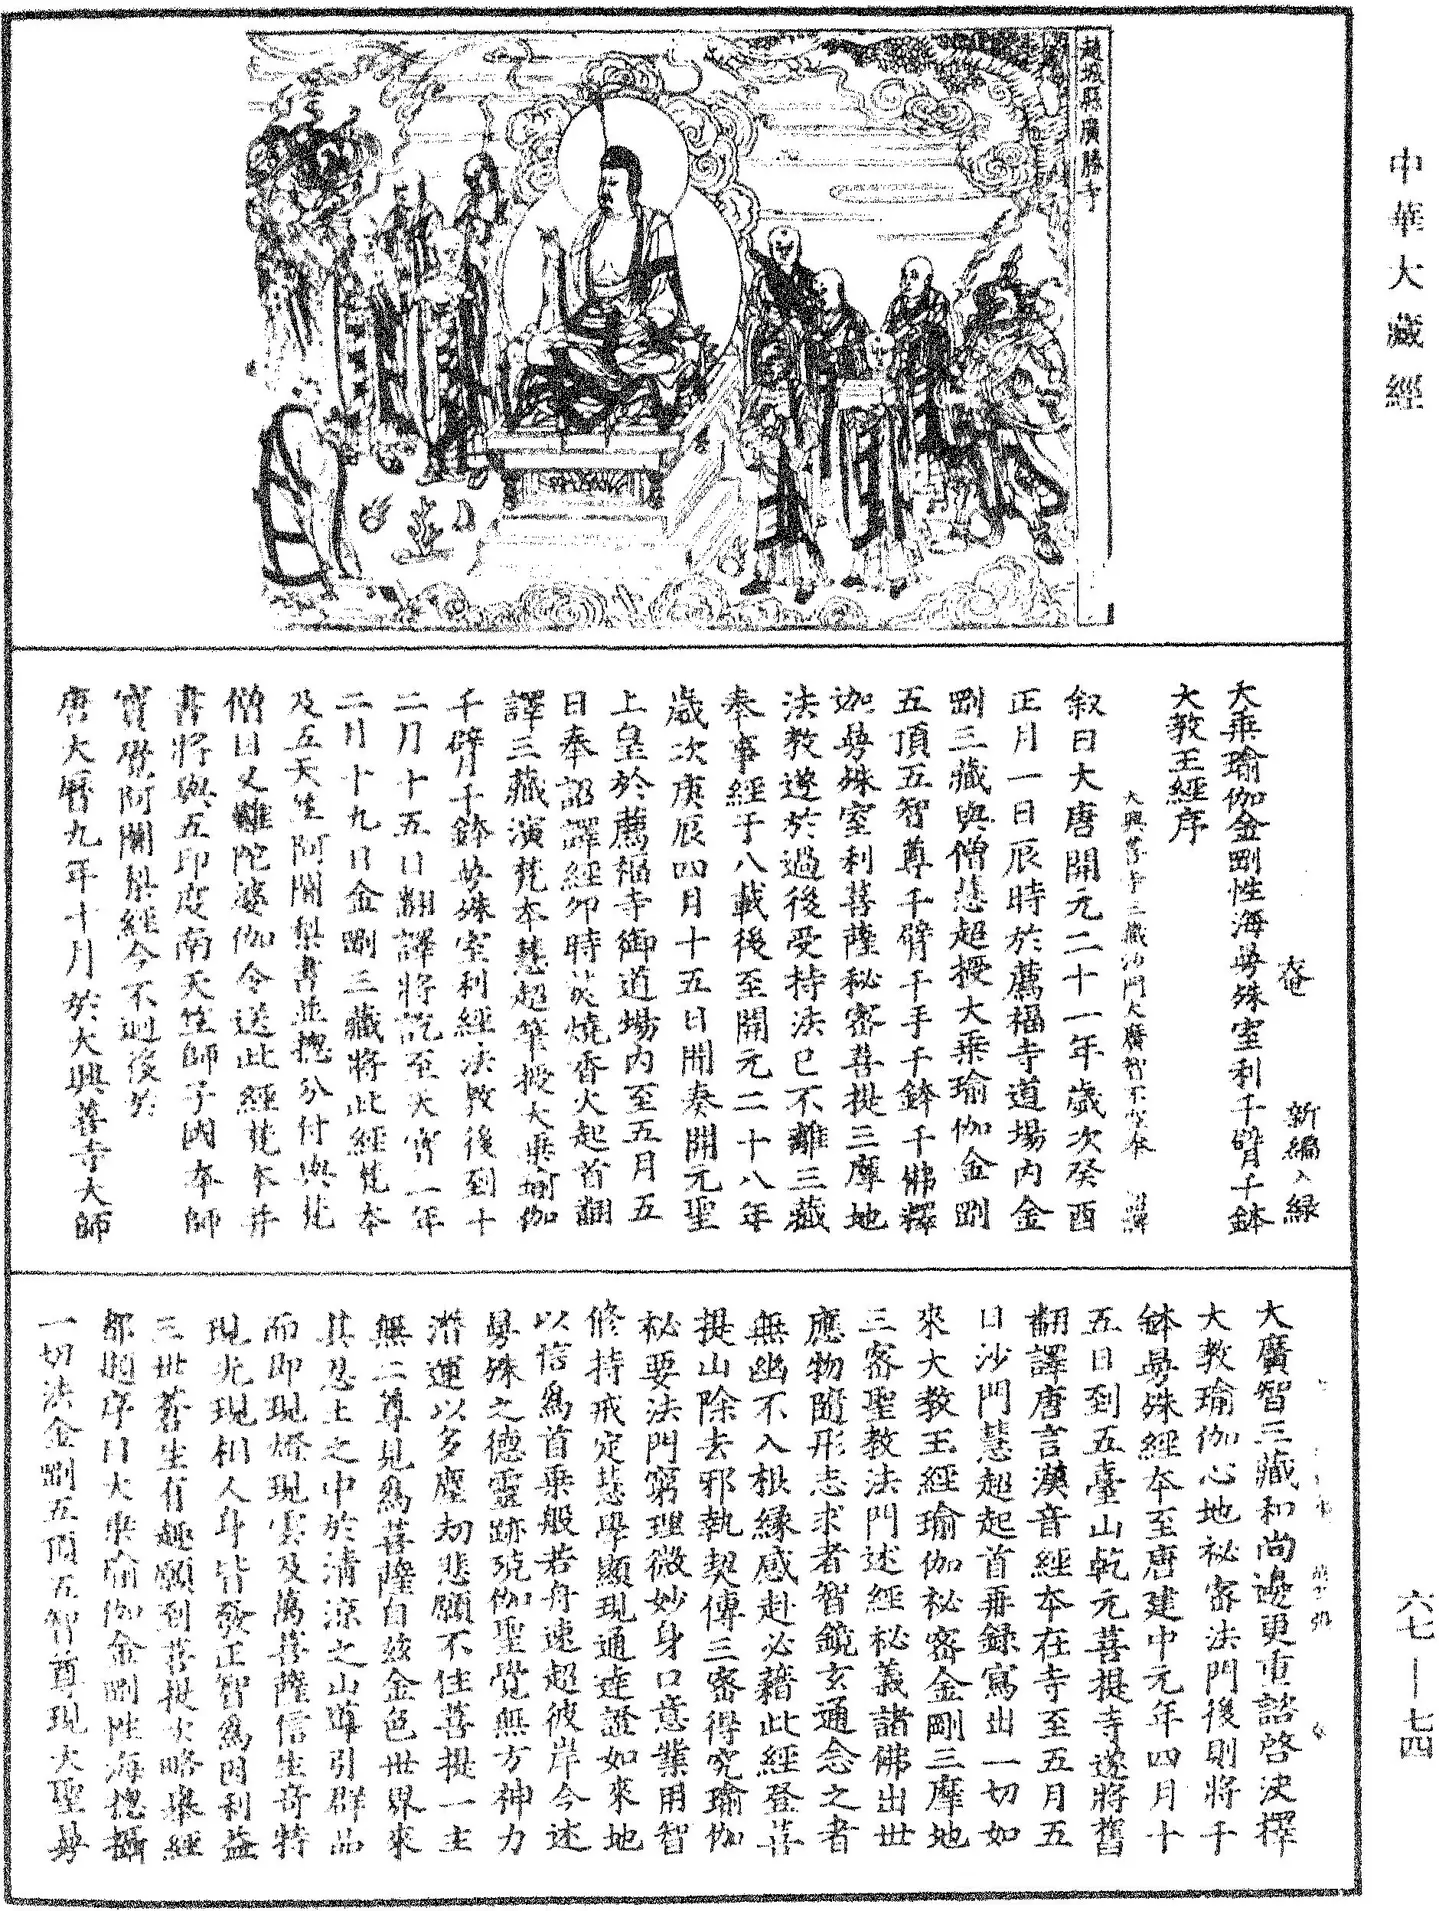 中華大藏經
趙城縣廣勝寺
新編入録
大乘瑜伽金剛性海曼殊室利千臂千鉢
大教王經序
大興善寺三藏沙門大廣智不空奉 詔譯
叙曰大唐開元二十一年歲次癸酉
正月一日辰時於薦福寺道場内金
剛三藏與僧慧超授大乘瑜伽金剛
五頂五智尊千臂千手千鉢千佛釋
迦曼殊室利菩薩秘密菩提三摩地
法教遂於過後受持法已不離三藏
奉事經于八載後至開元二十八年
歲次庚辰四月十五日開奏開元聖
上皇於薦福寺御道場内至五月五
日奉詔譯經卯時焚燒香火起首翻
譯三藏演梵本慧超筆授大乘瑜伽
千臂千鉢曼殊室利經法教後到十
二月十五日翻譯將訖至天寶一年
二月十九日金剛三藏將此經梵本
及五天竺阿闍梨書並揔分付與梵
僧目叉難陀婆伽令送此經梵本并
書將與五印度南天竺師子國本師
寶覺阿闍梨經今不迴後於
唐大曆九年十月於大興善寺大師
大廣智三藏和尚邊更重諮啓決擇
大教瑜伽心地祕密法門後則將千
鉢曼殊經本至唐建中元年四月十
五日到五臺山乾元菩提寺遂將舊
翻譯唐言漢音經本在寺至五月五
日沙門慧超起首再録寫出一切如
來大教王經瑜伽秘密金剛三摩地
三密聖教法門述經秘義諸佛出世
應物隨形志求者智鏡玄通念之者
無幽不入根緣感赴必藉此經登菩
提山除去邪執契傳三密得究瑜伽
祕要法門窮理微妙身口意業用智
修持戒定慧學顯現通達證如來地
以信爲首乗般若舟速超彼岸今述
曼殊之德靈跡殑伽聖覺無方神力
潜運以多塵劫悲願不住菩提一主
無二尊見爲菩薩自兹金色世界來
其忍土之中於清凉之山導引群品
而即現燈現雲及萬菩薩信生奇特
現光現相人身皆發正智爲因利益
三世蒼生有趣願到菩提大略舉經
都題序曰大乘瑜伽金剛性海揔攝
一切法金剛五頂五智尊現大聖曼
六七—七四